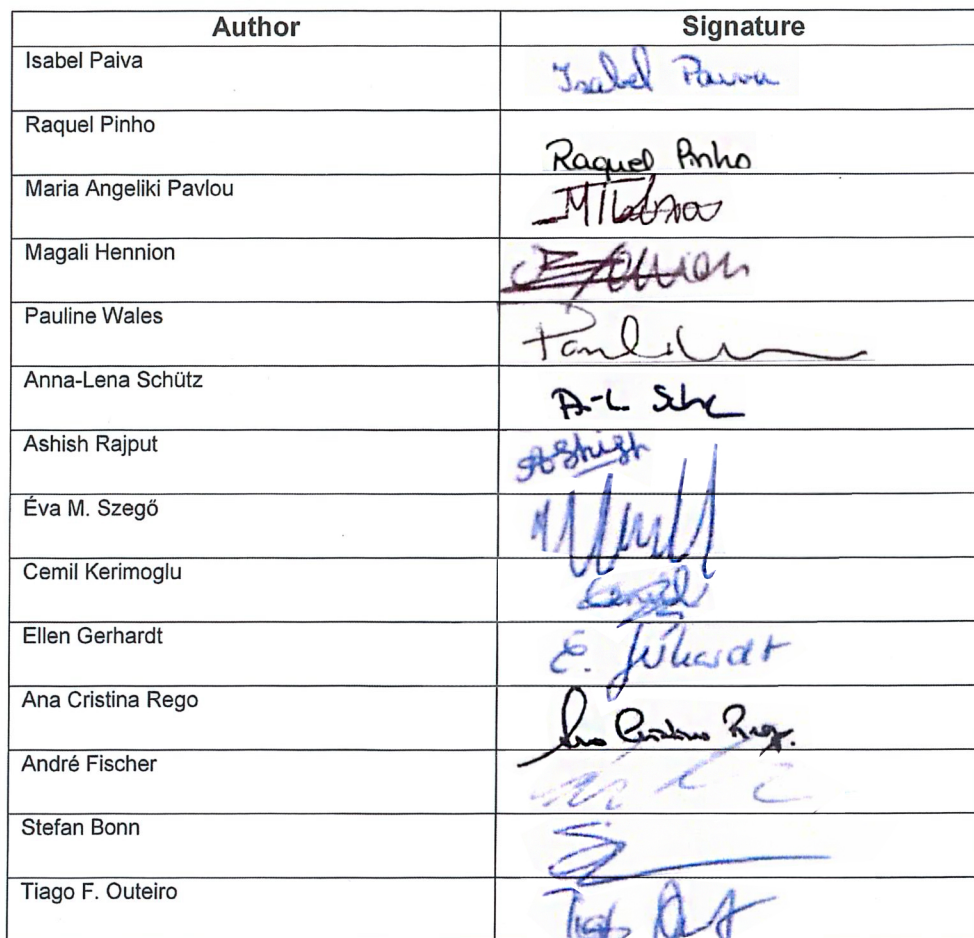 Author Signature
Isabel Paiva Isabel Paiva
Raquel Pinho Raquel Pinho
Maria Angeliki Pavlou
Magali Hennion
Pauline Wales
Anna-Lena Schütz A-L
Ashish Rajput Ashish
Éva M. Szegő
Cemil Kerimoglu
Ellen Gerhardt E. Gerhardt
Ana Cristina Rego Ana Cristina Rego
André Fischer
Stefan Bonn
Tiago F. Outeiro Tiago